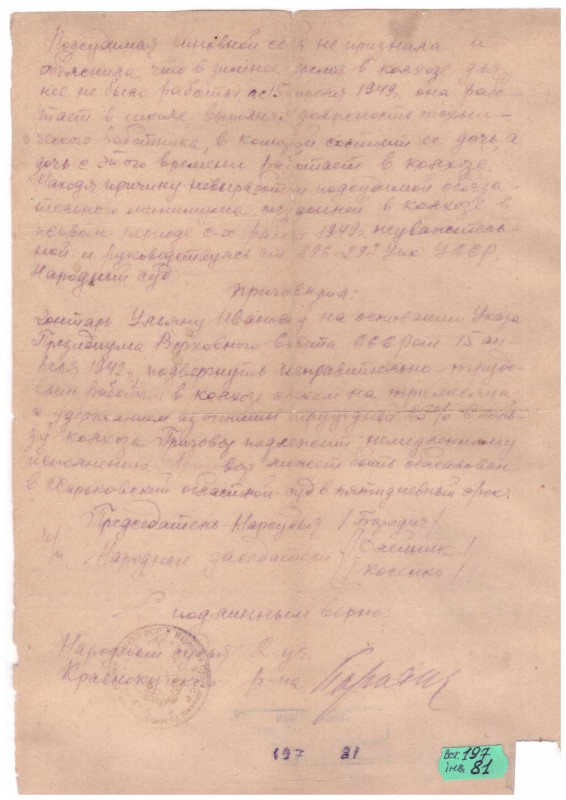 Подсудимая виновной себя не признала и
объяснила, что в зимнее время в колхозе для
нее не было работы, а с 15 апреля 1949 г. она рабо-
тает в школе, выполняя должность техни-
ческого работника, в которой состоит ее дочь, а
дочь с этого времени работает в колхозе.
Находя причину невыработки подсудимой обяза-
тельного минимума трудодней в колхозе в
первом периоде с-х работ 1949 г. неуважитель-
ной и руководствуясь ст 296-297 УПК УССР,
Народный суд
приговорил:
Ульяну Ивановну на основании Указа
Президиума Верховного Совета СССР от 15 ап-
реля 1942 г. подвергнуть исправительно-трудо-
вым работам в колхозе сроком на три месяца,
с удержанием из оплаты трудодней 25% в поль-
зу колхоза. Приговор подлежит немедленному
исполнению. может быть обжалован
в Харьковский областной суд в пятидневный срок.
Председатель Нарсудья
Народные заседатели /Олейник/
/Косенко/
С подлинным верно:
Народный судья 2 уч.
Краснокутского р-на
197 81
Вст. 197
інв. 81